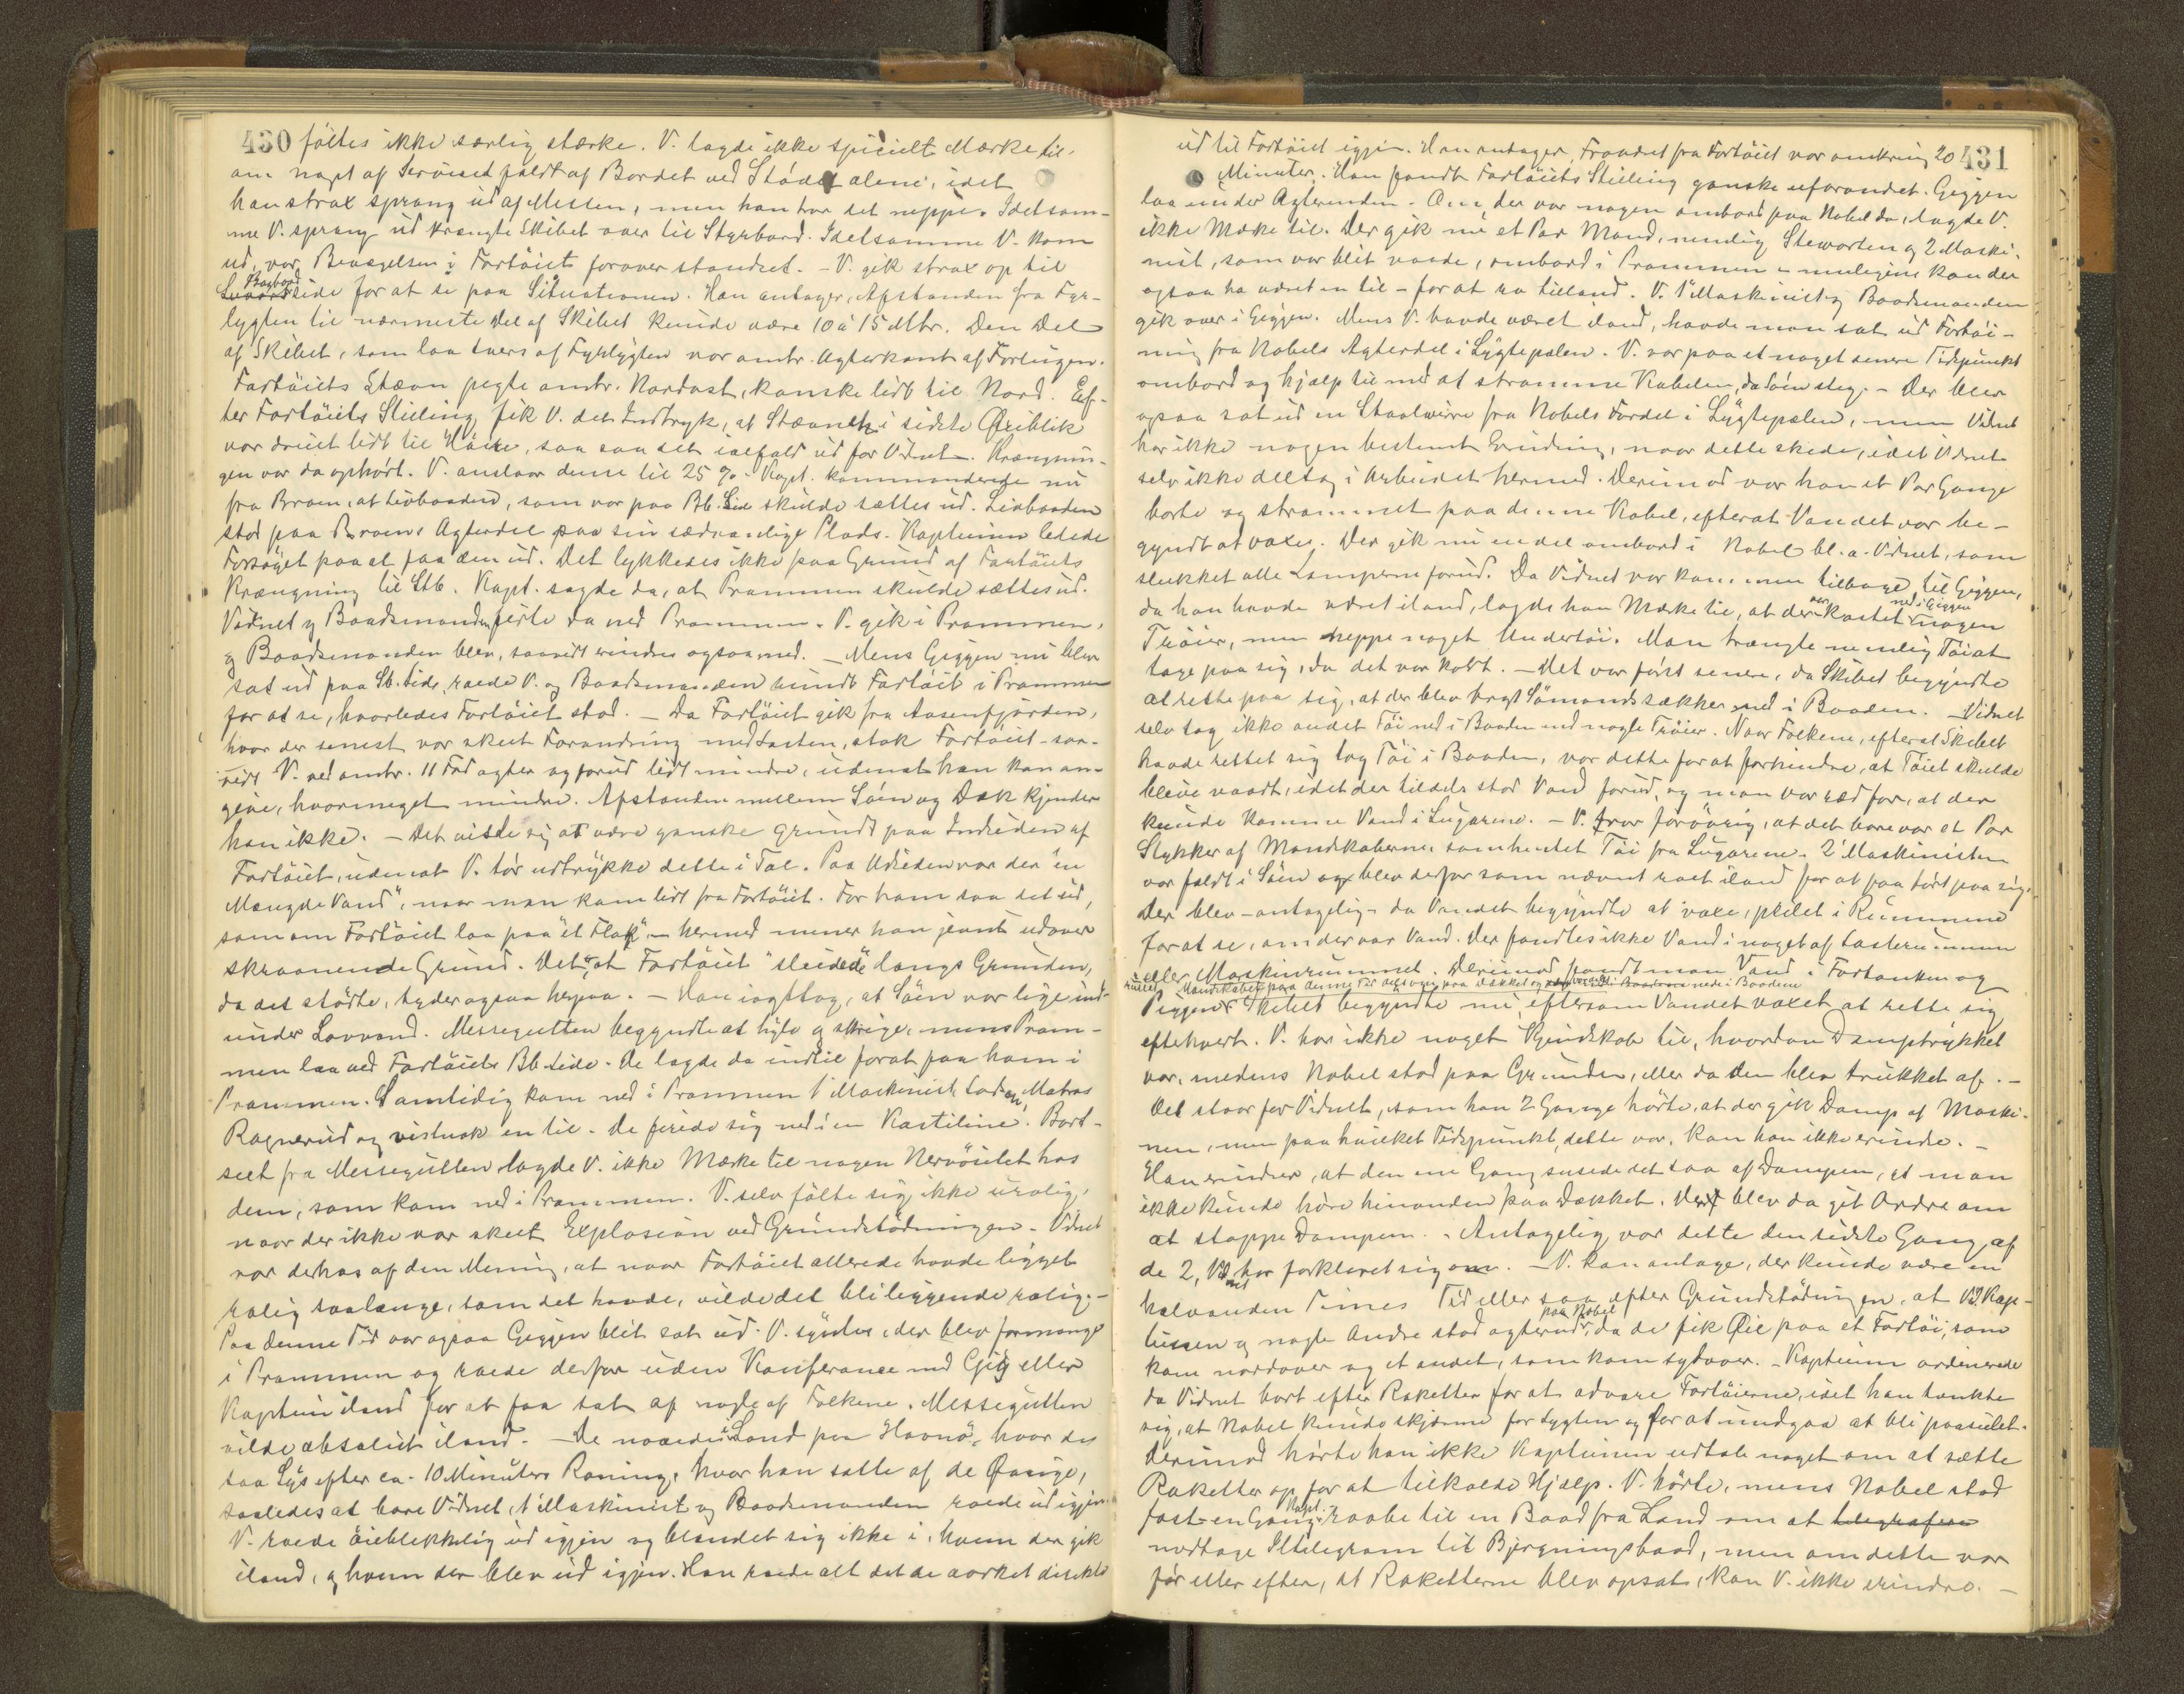 430
föltes ikke særlig stærke. V. lagde ikke specielt Mærke til,
om noget af Serviset faldt af Bordet ved Stödet alene, idet
han strax sprang ud af Messen, men han tror det neppe. Idetsam-
me V. sprang ud krængte Skibet over til Styrbord. Idetsamme V. kom
ud, var Bevægelsen i Fartöiet forover standset. - V. gik strax op til
Bagbord
side for at se paa Situationen. Han antager, Afstanden fra Fyr-
lygten til nærmeste Del af Skibet kunde være 10 à 15 Mtr. Den Del
af Skibet, som laa tvers af Fyrlygten var omtr. Agterkant af Forlugen.
Fartöiets Stævn pegte omtr. Nordost, kanske lidt til Nord. Ef-
ter Fartöiets Stilling fik V. det Indtryk, at Stævnen i sidste Öieblik
var dreiet lidt til Höire, saa saa det ialfald ud for Vidnet. Krængnin-
gen var da ophört. V. anslaar denne til 25 %. - Kapt. kommanderede nu
fra Broen, at Livbaaden, som var paa Bb. Side skulde sættes ud. Livbaaden
stod paa Broens Agterdel paa sin sædvanlige Plads. Kapteinen ledede
Forsöget paa at faa den ud. Det lykkedes ikke paa Grund af Fartöiets
Krængning til Stb. Kapt. sagde da, at Prammen skulde sættes ud.
Vidnet og Baadsmanden firte da ned Prammen. V. gik i Prammen,
og Baadsmanden blev, saavidt erindres ogsaa med. - Mens Giggen nu blev
sat ud paa Sb. Side, roede V. og Baadsmanden rundt Fartöiet i Prammen
for at se, hvorledes Fartöiet stod. - Da Fartöiet gik fra Aasenfjorden,
hvor der senest var skeet Forandring med Lasten, stak Fartöiet - saa-
vidt V. ved omtr. 11 Fod agter og forud lidt mindre, uden at han kan an-
give, hvormeget mindre. Afstanden mellem Söen og Dæk kjender
han ikke. - Det viste sig at være ganske grundt paa Indsiden af
Fartöiet, uden at V. tör udtrykke dette i Tal. Paa Udsiden var der "en
Mængde Vand", naar man kom lidt fra Fartöiet. For ham saa det ud,
som om Fartöiet laa paa "et Flak" - hermed mener han jevnt udover
skraanende Grund. Det, at Fartöiet "sleidede" langs Grunden,
da det stödte, tyder ogsaa herpaa. - Han iagttog, at Söen var lige ind-
under Lavvand. Messegutten begyndte at hyle og skrige, mens Pram-
men laa ved Fartöiets Bb Side. De lagde da indtil for at faa ham i
Prammen. Samtidig kom ned i Prammen 1' Maskinist, Matros
Ragnerud og vistnok en til. De firede sig ned i en Kasteline. Bort-
seet fra Messegutten lagde V. ikke Mærke til nogen Nervösitet hos
dem, som kom ned i Prammen. V. selv fölte sig ikke urolig,
naar der ikke var skeet Explosion ved Grundstödningen. Vidnet
var derhos af den Mening, at naar Fartöiet allerede havde ligget
rolig saalænge, som det havde, vilde det bli liggende rolig. -
Paa denne Tid var ogsaa Giggen blit sat ud. V. syntes, der blev formange
i Prammen og roede derfor uden Konferance med Gig eller
Kaptein iland for at faa sat af nogle af Folkene. Messegutten
vilde absolut iland. - De roede i Land paa Havnö, hvor de
saa Lys efter ca. 10 Minuters Roning, hvor han satte af de Övrige,
saaledes at bare Vidnet, 1' Maskinist og Baadsmanden roede ud igjen.
V. roede öieblikkelig ud igjen og blandet sig ikke i, hvem der gik
iland, og hvem der blev ud igjen. Han roede alt det de orket direkte
431
ud til Fartöiet igjen. Han antager, Fraværet fra Fartöiet var omkring 20
Minuter. Han fandt Fartöiets Stilling ganske uforandret. Giggen
laa under Agterenden. Om der var nogen ombord paa Nobel da, lagde V.
ikke Mærke til. Der gik nu et Par Mand, nemlig Stewarten og 2 Maski-
nist, som var blit vaade, ombord i Prammen - muligens kan der
ogsaa ha været en til - for at ro tilland. V. 1' Maskinist og Baadsmanden
gik over i Giggen. Mens V. havde været iland, havde man sat ud Fortöi-
ning fra Nobels Agterdel i Lygtepælen. V. var paa et noget senere Tidspunkt
ombord og hjalp til med at stramme Kabelen, da Söen steg. - Der blev
ogsaa sat ud en Staalwire fra Nobels Fordel i Lygtepælen, men Vidnet
har ikke nogen bestemt Erindring, naar dette skede, idet Vidnet
selv ikke deltog i Arbeidet hermed. Derimod var han et Par Gange
borte og strammet paa denne Kabel, efterat Vandet var be-
gyndt at voxe. Der gik nu endel ombord i Nobel bl. a. Vidnet, som
slukket alle Lamperne forud. Da Vidnet var kommen tilbage til Giggen,
da han havde været iland, lagde han Mærke til, at der var kastet ned i Giggen nogen
Tröier, men neppe noget Undertöi. Man trængte nemlig Töi at
tage paa sig, da det var koldt. - Det var först senere, da Skibet begyndte
at rette paa sig, at der blev bragt Sömandssækker ned i Baaden. Vidnet
selv tog ikke andet Töi ned i Baaden end nogle Tröier. Naar Folkene, efter at Skibet
havde rettet sig tog Töi i Baaden, var dette for at forhindre, at Töiet skulde
bleve vaadt, idet der tildels stod Vand forud, og man var ræd for, at der
kunde komme Vand i Lugarene. - V. tror forövrig, at det bare var et Par
Stykker af Mandskaberne, som hentet Töi fra Lugarene. 2' Maskinisten
var faldt i Söen og blev derfor som nævnt roet iland for at faa tört paa sig.
Der blev - antagelig - da Vandet begyndte at voxe, peilet i Rummene
for at se, om der var Vand. Der fandtes ikke Vand i noget af Lasterummene
eller Maskinrummet. Derimod fandt man Vand i Fortanken og
Mandskabet paa denne Tid dels oppe paa Dækket og nede i Baadene
Piggen. Skibet begyndte nu, eftersom Vandet voxet at rette sig
efterhvert. V. har ikke noget Kjendskab til, hvordan Damptrykket
var, medens Nobel stod paa Grunden, eller da den blev trukket af. -
Det staar for Vidnet, som han 2 Gange hörte, at der gik Damp af Maski-
nen, men paa hvilket Tidspunkt, dette var, kan han ikke erindre. -
Han erindrer, at den ene Gang susede det saa af Dampen, at man
ikke kunde höre hinanden paa Dækket. Der blev da git Ordre om
at stoppe Dampen. - Antagelig var dette den sidste Gang, af
de 2, Vidnet har forklaret sig om. - V. kan antage, der kunde være en
halvanden Times Tid eller saa efter Grundstödningen, at V. Kap-
teinen og nogle Andre stod agterud paa Nobel, da de fik Öie paa et Fartöi, som
kom nordover og et andet, som kom sydover. - Kapteinen ordinerede
da Vidnet bort efter Raketter for at advare Fartöierne, idet han tænkte
sig, at Nobel kunde skjærme for Lygten og for at undgaa at bli paaseilet.
Derimod hörte han ikke Kapteinen udtale noget om at sætte
Raketter op for at tilkalde Hjælp. V. hörte, mens Nobel stod
fast en Gang Kapt. raabe til en Baad fra Land om at telegrafere
modtage Iltelegram til Bjergningsbaad, men om dette var
för eller efter, at Raketterne blev opsat, kan V. ikke erindre. -